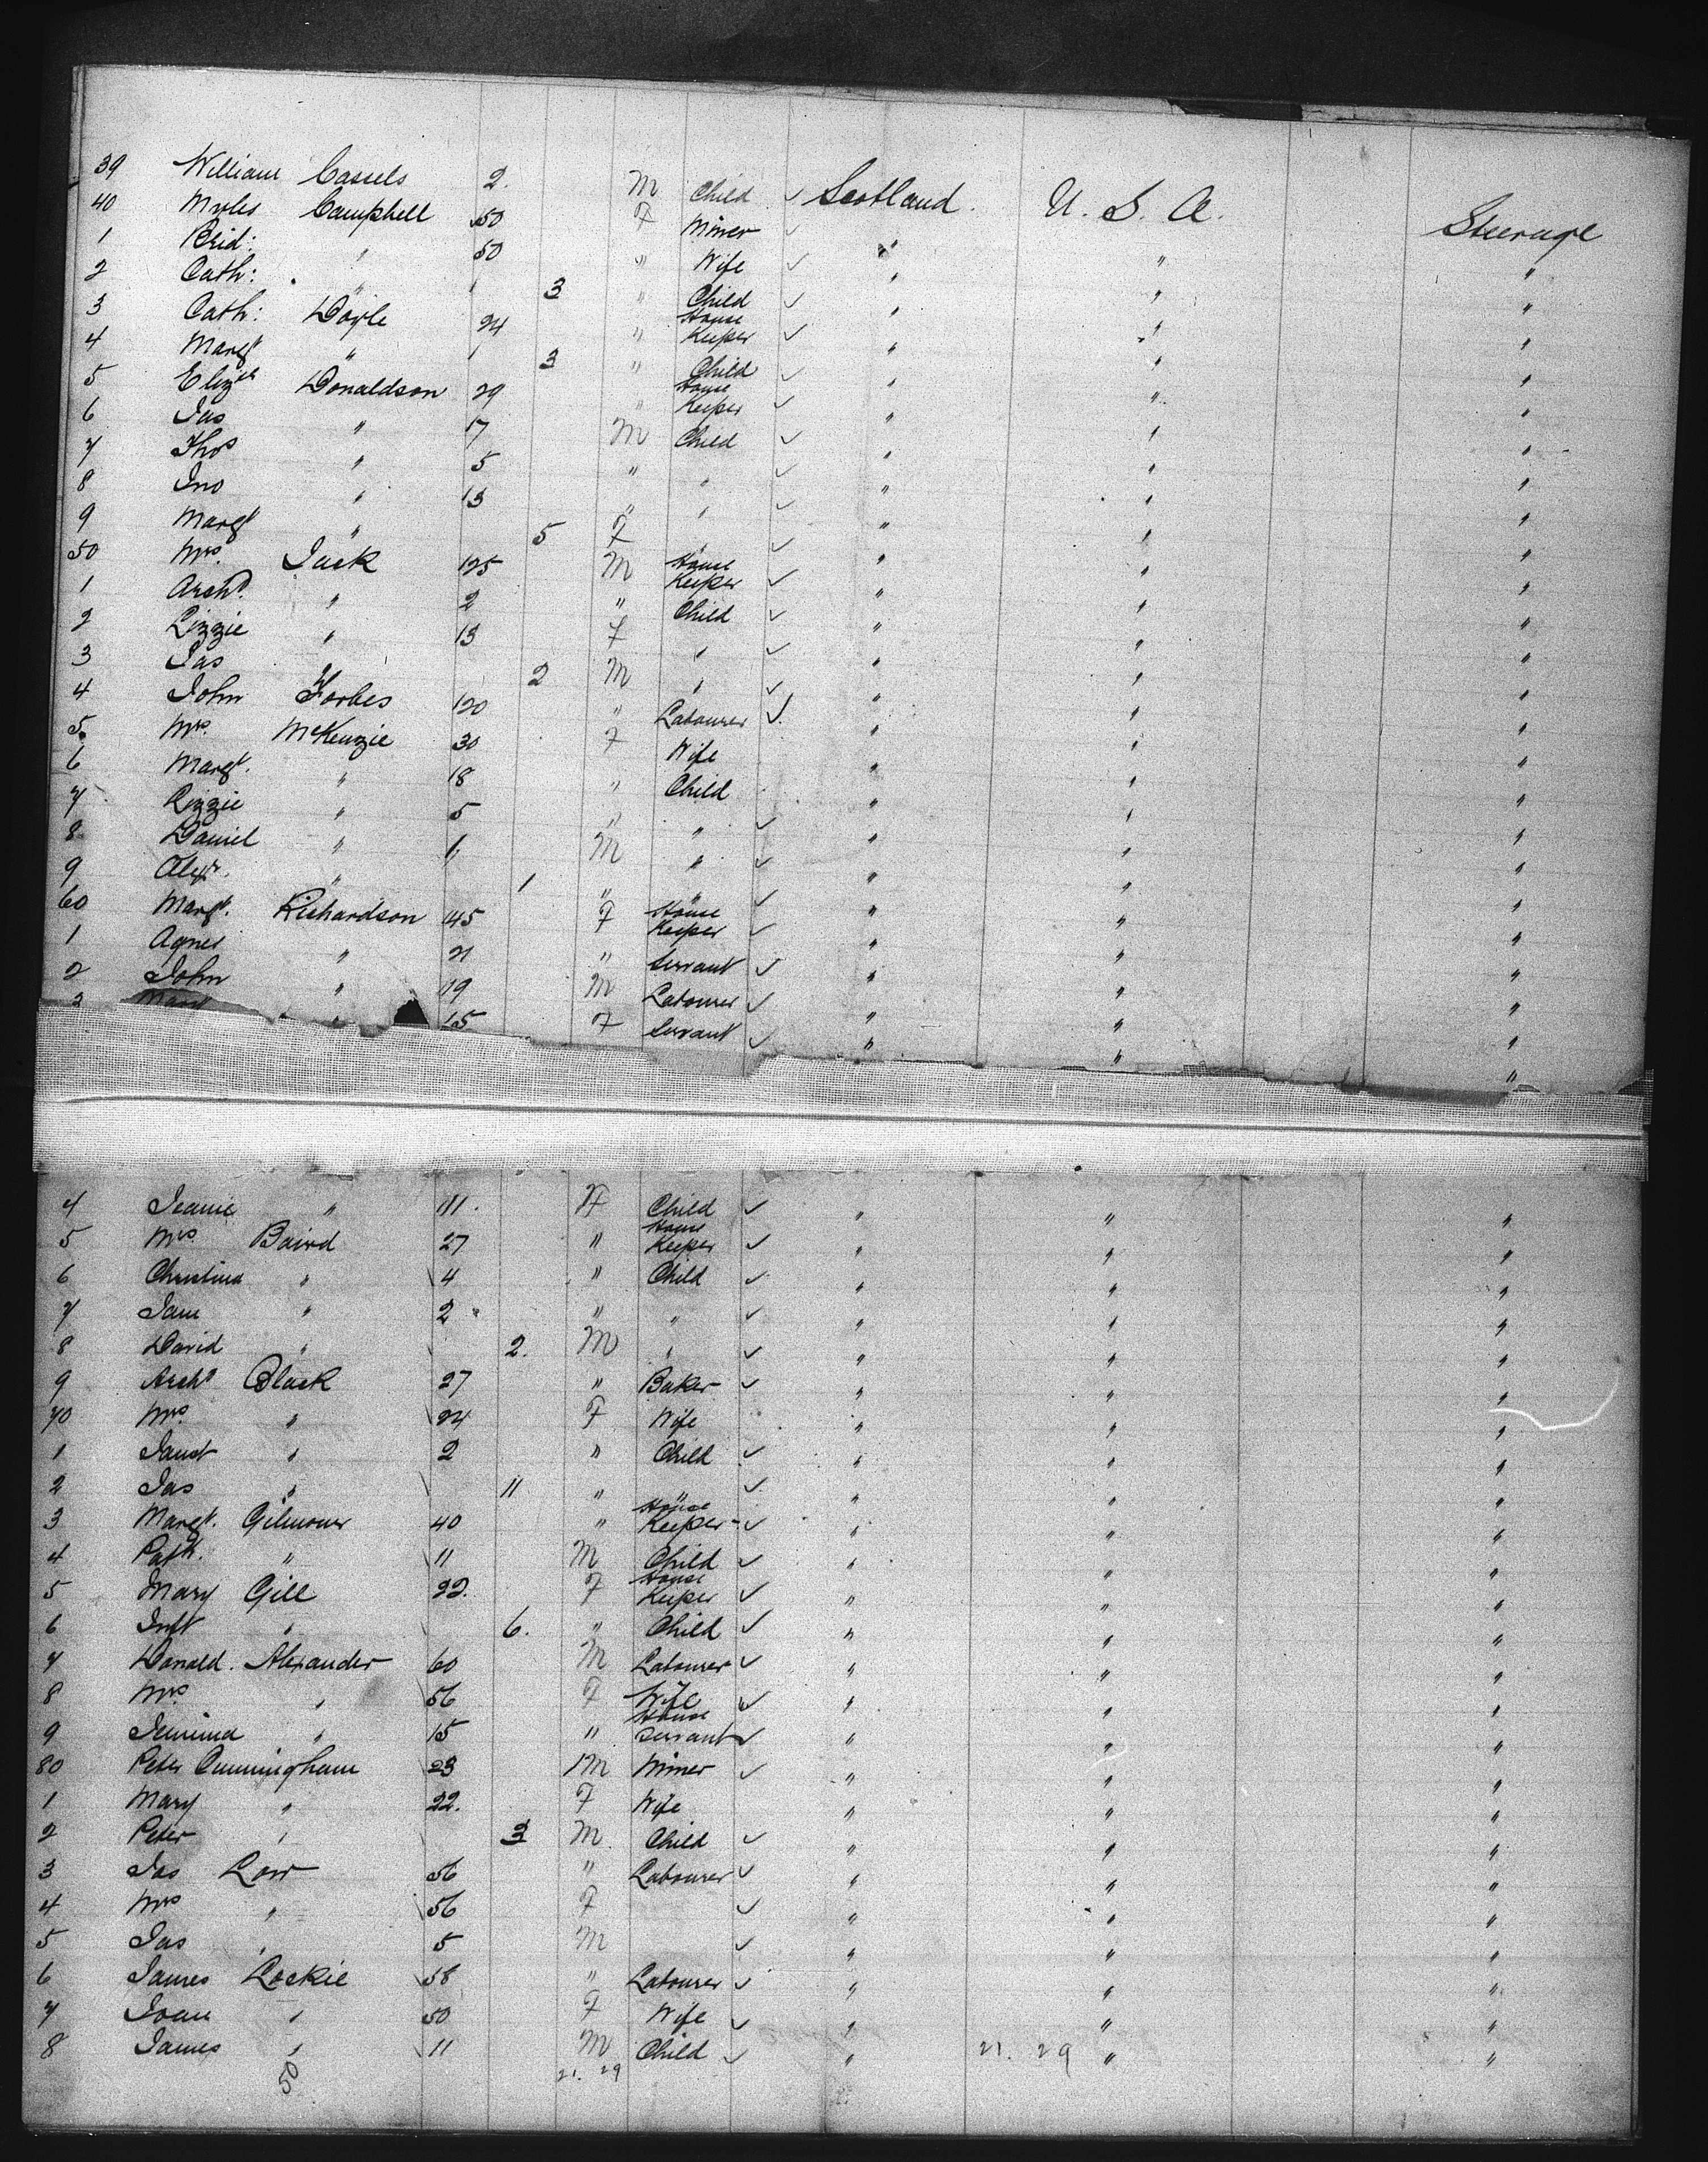 39 William Cassels 2. M Child ✓ Scotland. U. S. A. Steerage
40 Myles Campbell 50 F Miner ✓ " " "
1 Brid: " 50 " Wife ✓ " " "
2 Cath: " 3 " Child ✓ " " "
3 Cath: Doyle 24 " House Keeper ✓ " " "
4 Margt " 3 " Child ✓ " " "
5 Elizth Donaldson 29 " House Keeper ✓ " " "
6 Jas " 7 M Child ✓ " " "
7 Thos " 5 " " ✓ " " "
8 Jno " 3 " " ✓ " " "
9 Margt " 5 F " ✓ " " "
50 Mrs. Jack 25 M House Keeper ✓ " " "
1 Archd. " 2 " Child ✓ " " "
2 Lizzie " 3 F " ✓ " " "
3 Jas " 2 M " ✓ " " "
4 John Forbes 20 " Labourer ✓ " " "
5. Mrs. McKenzie 30 F Wife " " "
6 Margt. " 8 " Child " " "
7 Lizzie " 5 " " ✓ " " "
8 Daniel " 1 M " ✓ " " "
9 Alexr. " 1 " " ✓ " " "
60 Margt. Richardson 45 F House Keeper ✓ " " "
1 Agnes " 21 " Servant ✓ " " "
2 John " 19 M Labourer ✓ " " "
3 Margt " 15 F Servant ✓ " " "
4 Jeanie " 11. F Child ✓ " " "
5 Mrs. Baird 27 " House Keeper ✓ " " "
6 Christina " 4 " Child ✓ " " "
7 Jane " 2 " " ✓ " " "
8 David " 2. M " ✓ " " "
9 Archd Black 27 " Baker ✓ " " "
70 Mrs. " 24 F Wife " " "
1 Janet " 2 " Child ✓ " " "
2 Jas " 11 " " ✓ " " "
3 Margt. Gilmour 40 " House Keeper ✓ " " "
4 Patk. " 11 M Child ✓ " " "
5 Mary Gill 22. F House Keeper ✓ " " "
6 Inft " 6. " Child ✓ " " "
7 Donald. Alexander 60 M Labourer ✓ " " "
8 Mrs " 56 F Wife ✓ " " "
9 Jemima " 15 " House Servant ✓ " " "
80 Peter Cunningham 23 M Miner ✓ " " "
1 Mary " 22. F Wife " " "
2 Peter " 3 M. Child ✓ " " "
3 Jas Low 56 " Labourer ✓ " " "
4 Mrs " 56 F ✓ " " "
5 Jas " 5 M ✓ " " "
6 James Lockie 58 " Labourer ✓ " " "
7 Joan " 50 F Wife ✓ " " "
8 James " 11 M Child ✓ " 21. 29 " "
50 21. 29